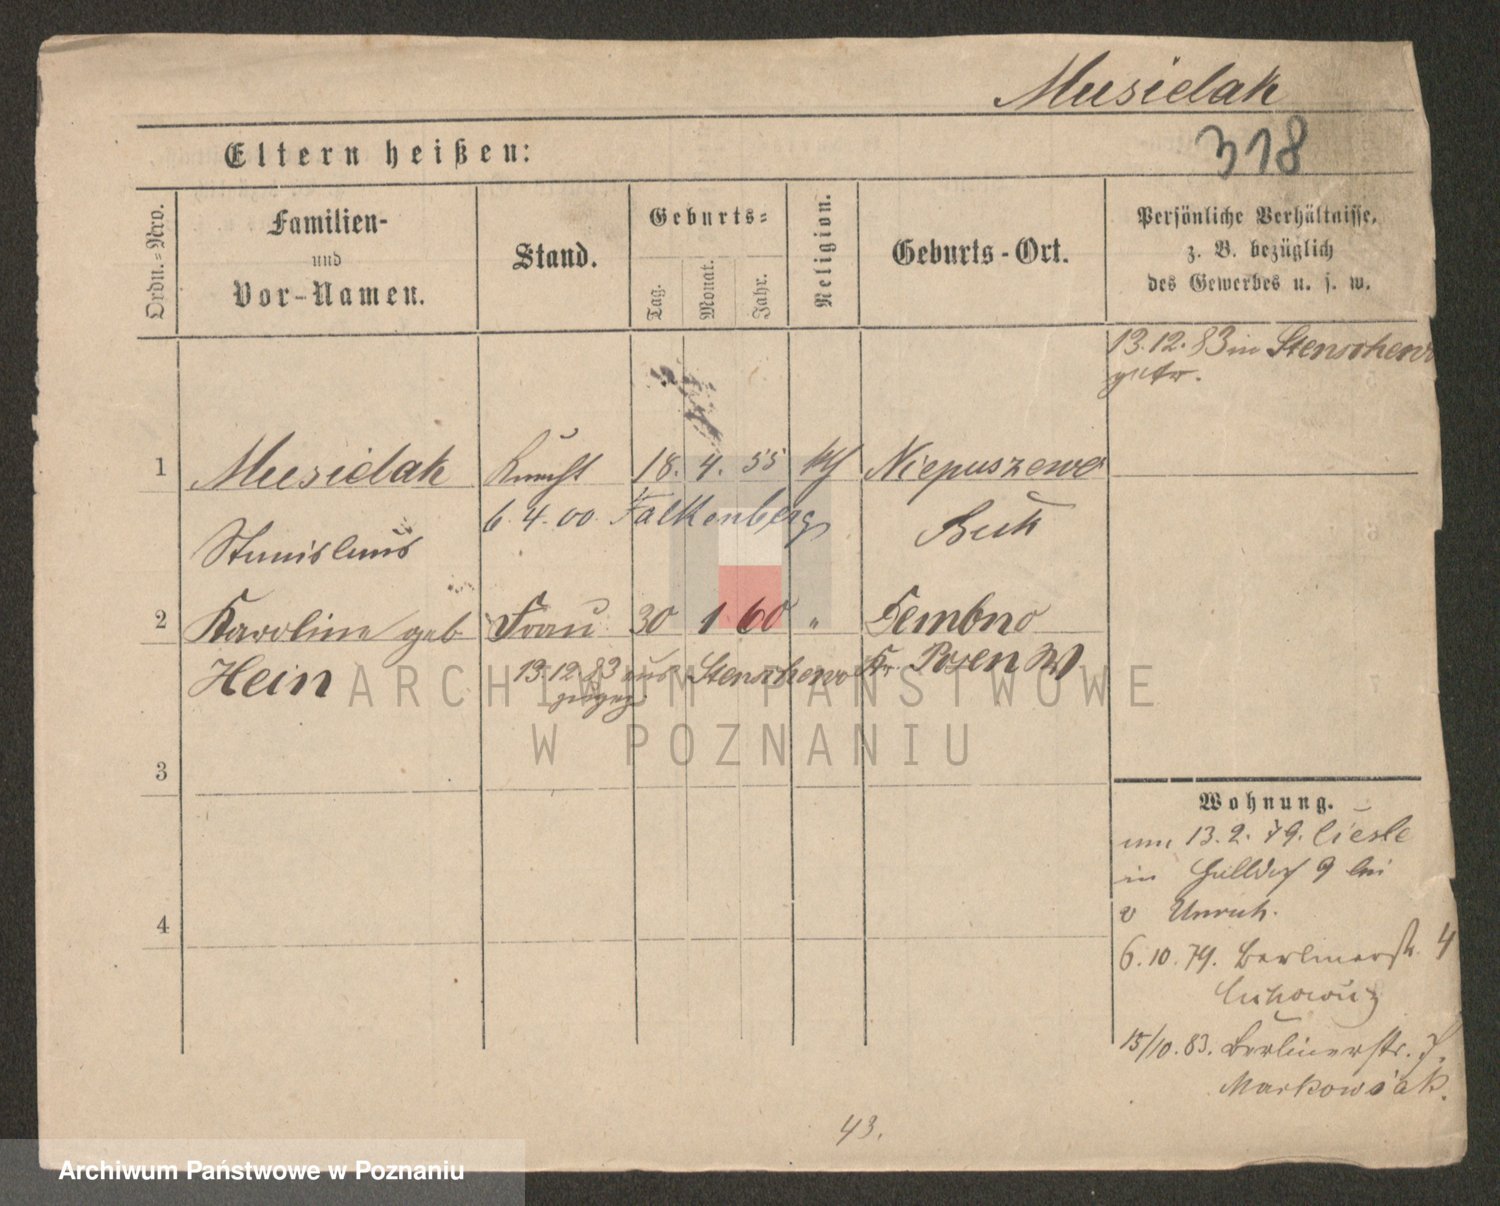 Musielak
318
Eltern heißen:
Ordn.-Nro.
Familien-
und
Vor-Namen.
Stand.
Geburts-
Tag.
Monat.
Jahr.
Religion.
Geburts-Ort.
Persönliche Verhältnisse,
z. B. bezüglich
des Gewerbes u. s. w.
13.12.83 in Stenschewo
getr.
1 Musielak Knecht 18. 4. 55 kth Niepuszewo
6.4.00 Falkenberg
Stanislaus Buk
2 Karoline geb Frau 30 1 60 " Dembno
Hein 13.12.83 aus Stenschewo Kr. Posen W
zugez
ARCHIWUM PAŃSTWOWE
W POZNANIU
3
4
Wohnung.
am 13.2.79.
in 9 bei
v Unruh.
6.10.79. Berlinerstr. 4
15/10.83. Berlinerstr. 7.
Markowiak.
43.
Archiwum Państwowe w Poznaniu